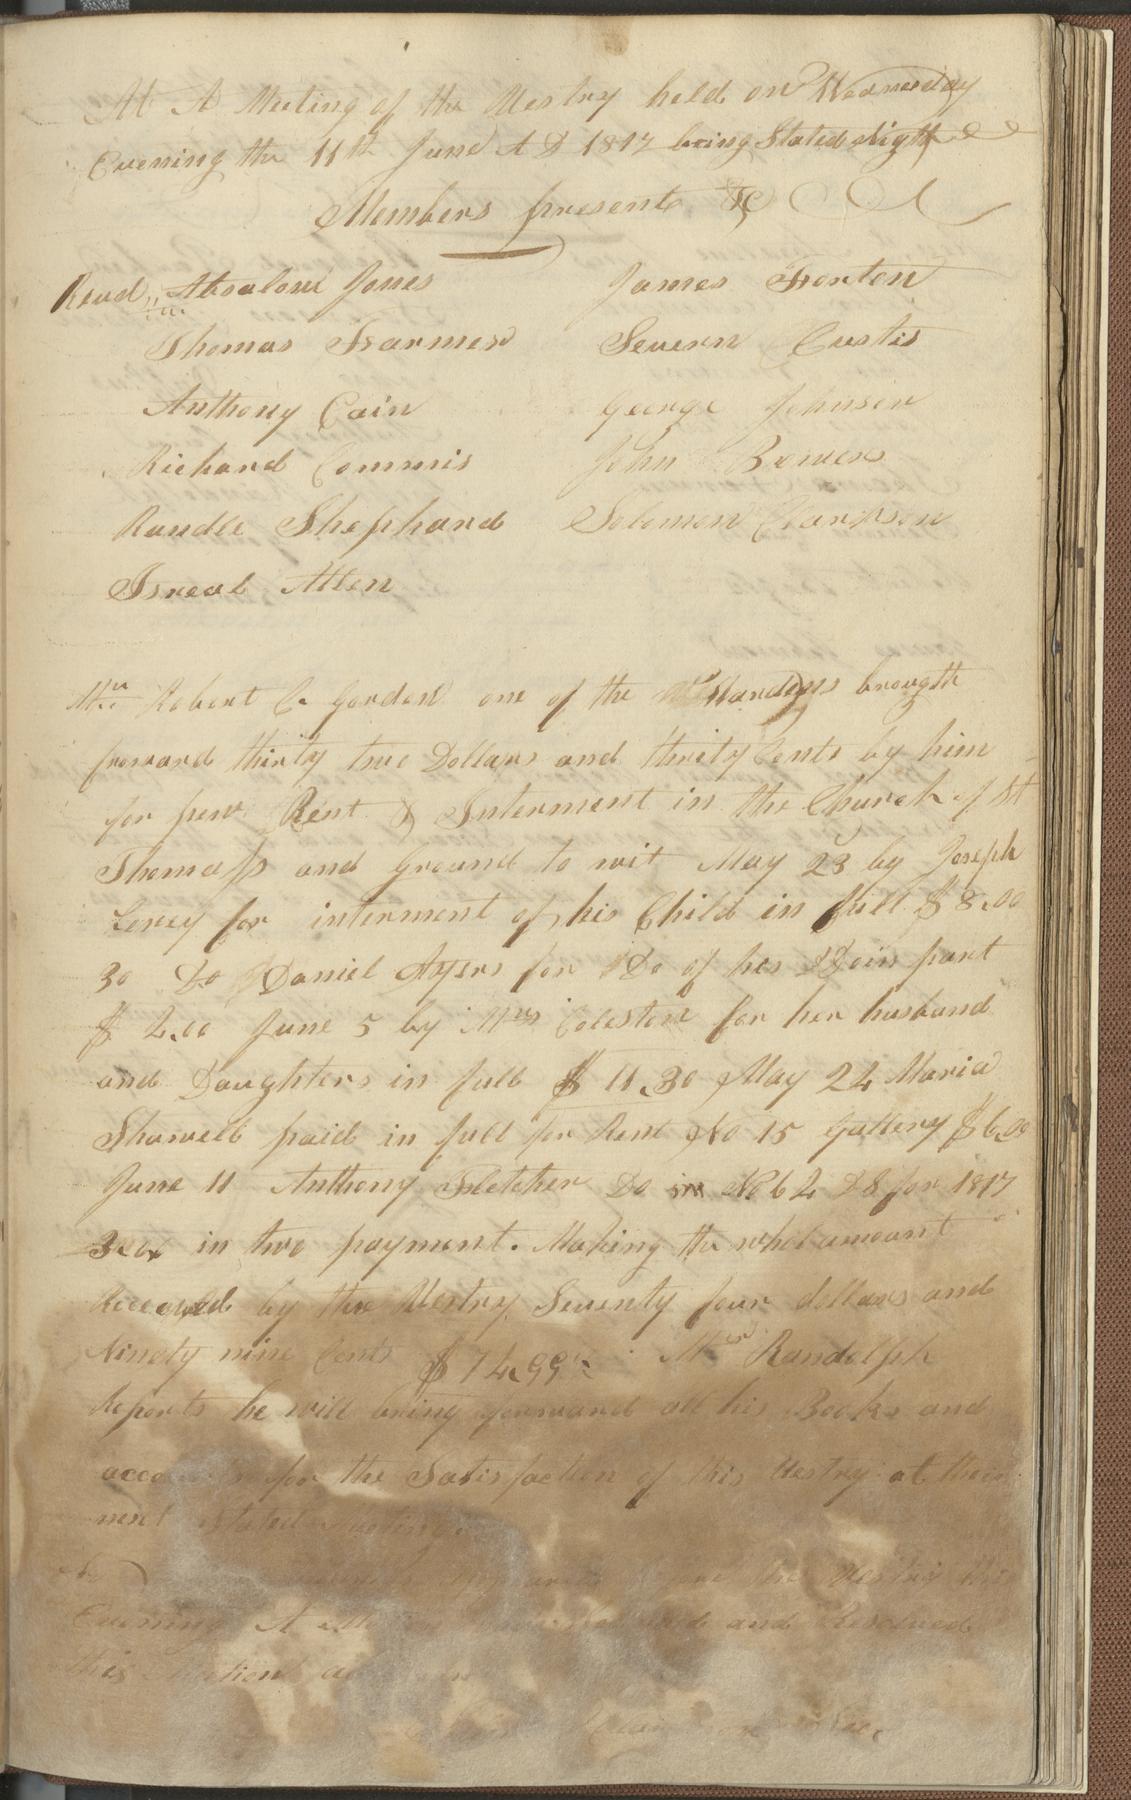 At A Meeting of the Vestry held on Wednesday
Evening the 11th June A D 1817 being Stated Nigth
Members present &c
Revd Absalom Jones James Trenton
Thomas Farmer Severn Custis
Anthony Cain George Johnson
Richard Commis John Bowers
Randle Shephard Solomon Clarkson
Isreal Allen
Mr Robert C Gordon one of the Wardens brougth
forward thirty two Dollars and thrity Cents by him
for pew Rent & Interment in the Church of St
Thomass and Ground to wit May 23 by Joseph
for interment of his Child in full $ 8.00
30 Do Daniel Ayers for Do of his Do in part
$ 2.00 June 5 by Mrs Coleston for her husband
and Daughters in full $ 11.30 May 24 Maria
Showell paid in full for Rent No 15 Gallery $6.00
June 11 Anthony Fletcher Do in No 62 DS for 1817
in two payment. Making the whol amount
Received by the Vestry Seventy four dollars and
Ninety nine Cents $ 74.99 Mr Randolph
Reports he will bring forward all his Books and
accounts for the Satisfaction of this Vestry at their
next stated meeting.
the Vestry this
Evening A and Resolved
this